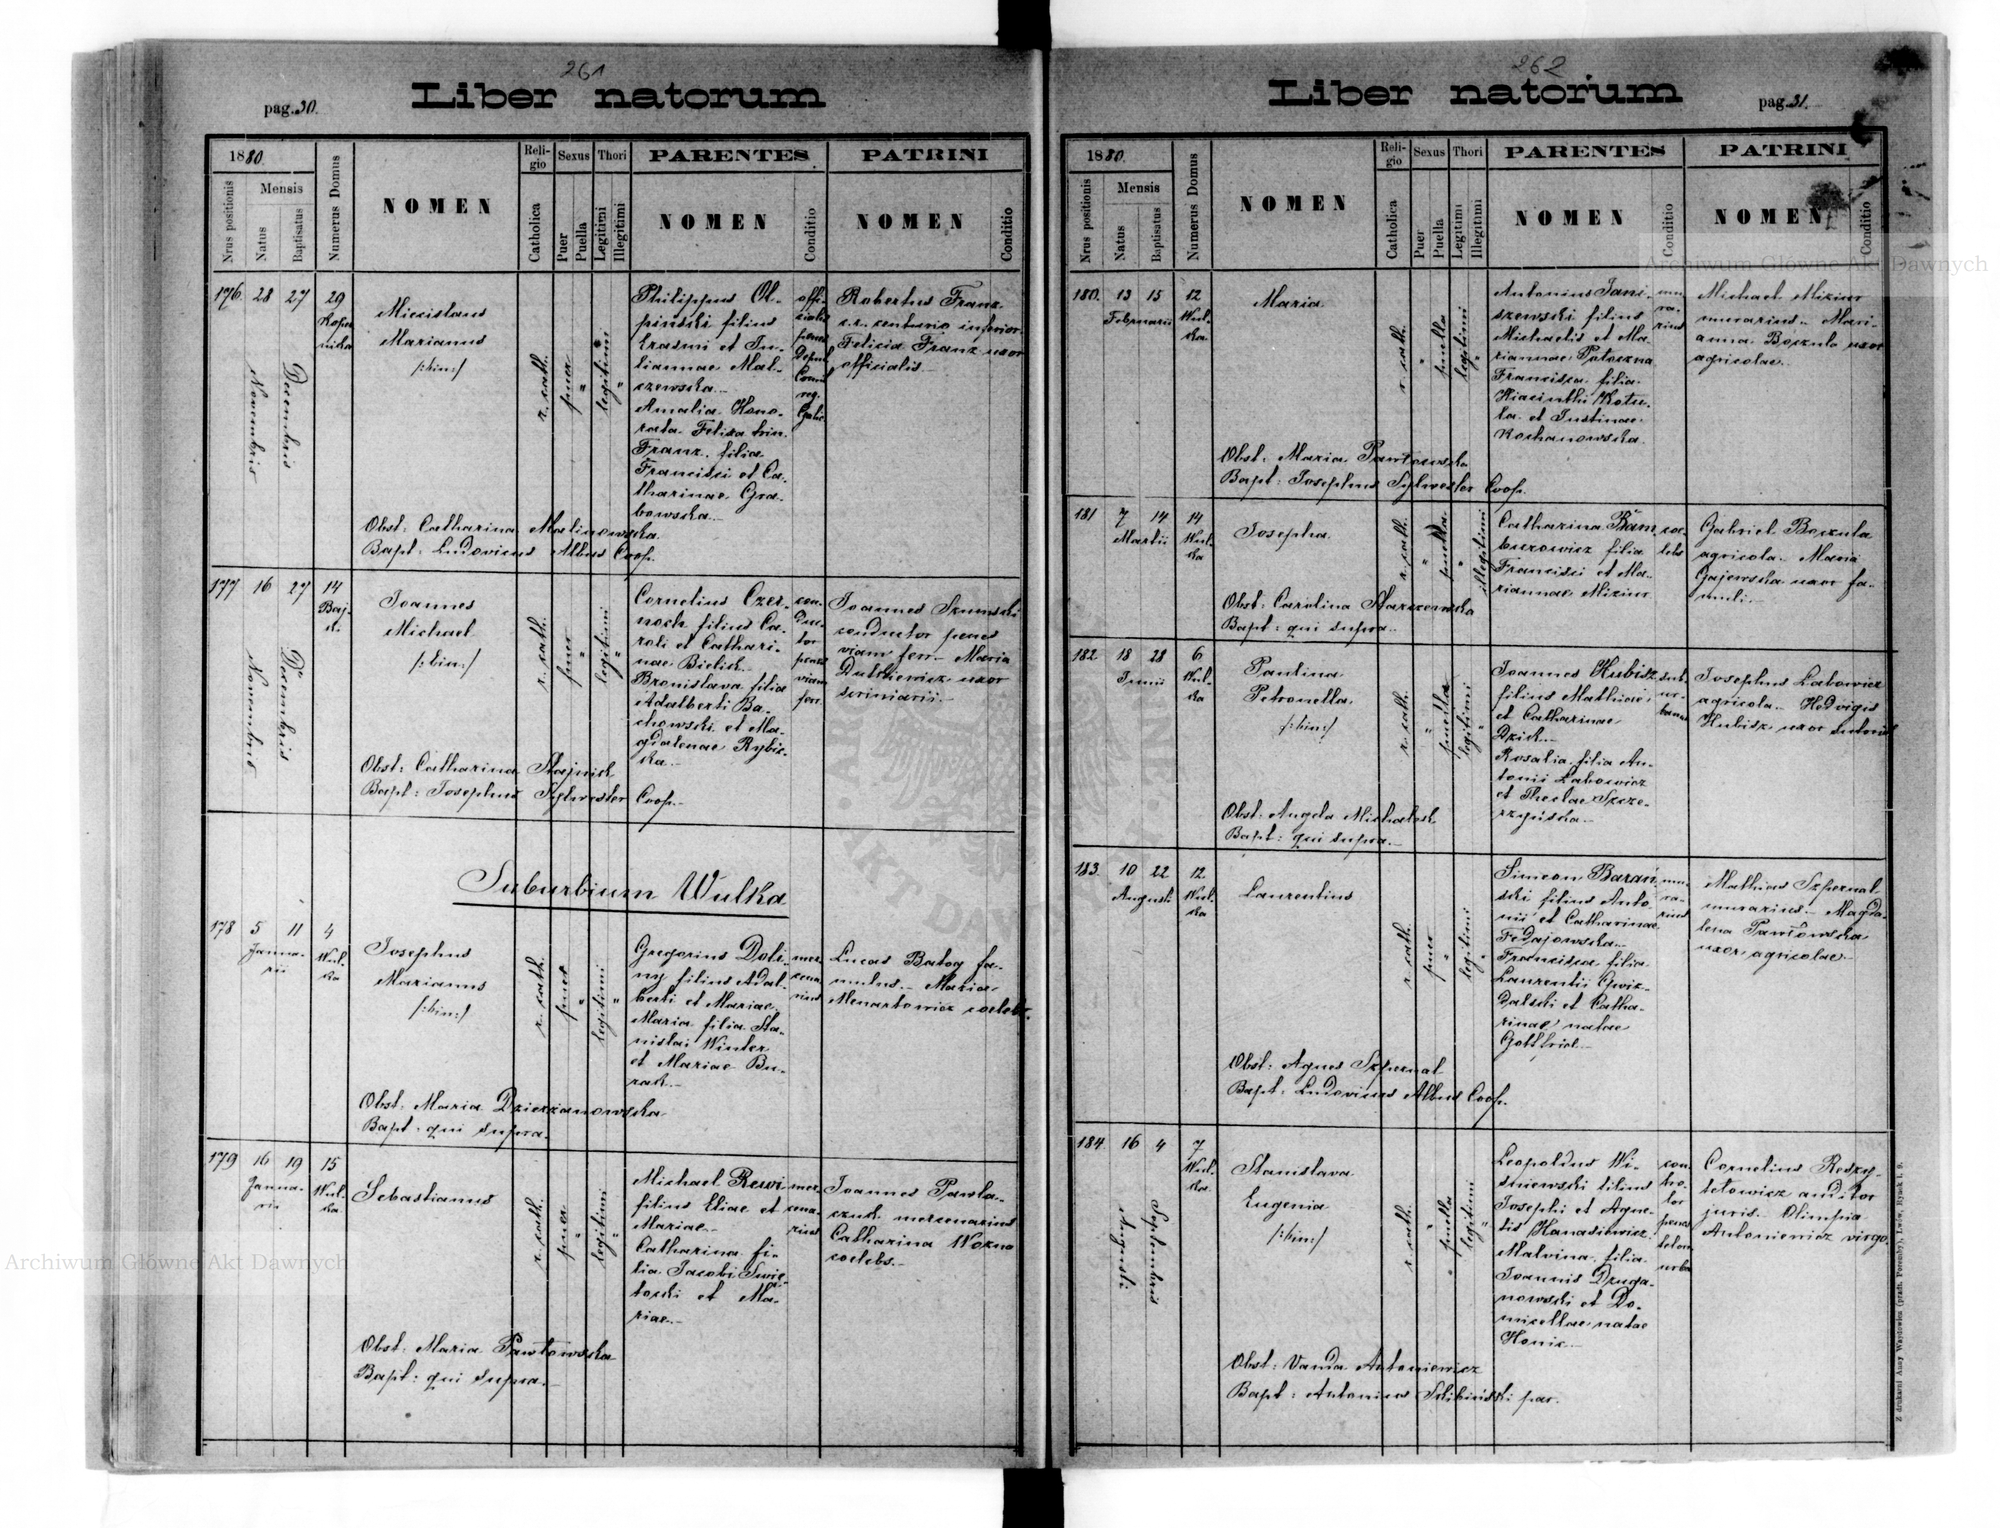 261
Liber natorum
pag. 30.
1880.
Nrus positionis
Mensis
Natus
Baptisatus
Numerus Domus
NOMEN
Reli-
gio
Catholica
Sexus
Puer
Puella
Thori
Legitimi
Illegitimi
PARENTES
NOMEN
Conditio
PATRINI
NOMEN
Conditio
176. 28 27 29
Koper
nika
Novembris
Decembris
Miecislaus
Marianus
/:bin:/
r. cath.
puer "
legitimi "
Philippus Ol-
piński filius
Erasmi et Ju-
liannae Mal-
czewska.
Amalia Hono-
rata Felixa trin.
Franz. filia
Francisci et Ca-
tharinae Gra-
bowska.
offi-
cialis
penes
Robertus Franz
c.r. centurio inferior
Felicia Franz uxor
officialis.
Obst: Catharina Malinowska.
Bapt: Ludovicus Albus Coop.
177 16 27 14
Baj-
ki.
Novembris
Decembris
Joannes
Michael
/:bin:/
r. cath.
puer "
legitimi "
Cornelius Czer-
noch filius Ca-
roli et Cathari-
nae Bielick.
Bronislava filia
Adalberti Ba-
chowski et Ma-
gdalenae Rybic-
ka.
con-
duc-
tor
penes
viam
ferr.
Joannes Szumski
conductor penes
viam ferr. Maria
Dutkiewicz uxor
scriniarii.
Obst: Catharina Stajnich
Bapt: Josephus Sylwester Coop.
Suburbium Wulka
178 5 11 4
Janua-
rii
Wul-
ka
Josephus
Marianus
/:bin:/
r. cath.
puer "
legitimi "
Gregorius Doli-
ny filius Adal-
berti et Mariae.
Maria filia Sta-
nislai Winter
et Mariae Bu-
rak.
mer-
cena-
rius
Lucas Batog fa-
mulus. Maria
Menartowicz coelebs.
Obst: Maria Dzierżanowska
Bapt: qui supra.
179 16 19 15
Janua-
rii
Wul-
ka.
Sebastianus
r. cath.
puer "
legitimi "
Michael Rewi
filius Eliae et
Mariae.
Catharina fi-
lia Jacobi Swię-
tocki et Ma-
riae.
mer-
cena-
rius
Joannes Pawla-
czuk mercenarius
Catharina Wozna
coelebs.
Obst: Maria Pawłowska
Bapt: qui supra.
262
Liber natorum
pag. 31.
1880.
Nrus positionis
Mensis
Natus
Baptisatus
Numerus Domus
NOMEN
Reli-
gio
Catholica
Sexus
Puer
Puella
Thori
Legitimi
Illegitimi
PARENTES
NOMEN
Conditio
PATRINI
NOMEN
Conditio
180. 13 15 12
Februarii
Wul-
ka
Maria
r. cath.
" puella
legitimi "
Antonius Jani-
szewski filius
Michaelis et Ma-
riannae Potoczna
Francisca filia
Hiacinthi Kotu-
la et Justinae
Kochanowska.
mu-
ra-
rius
Michael Miziur
murarius. Mari-
anna Boczula uxor
agricolae.
Obst: Maria Pawłowska
Bapt: Josephus Sylwester Coop.
181 7 14 14
Martii
Wul-
ka
Josepha
r. cath.
" puella
" illegitimi
Catharina Bam-
burowicz filia
Francisci et Ma-
riannae Miziur.
coe-
lebs
Gabriel Boczula
agricola. Maria
Gajewska uxor fa-
muli.
Obst: Carolina Starzewska
Bapt: qui supra.
182 18 28 6
Junii
Wul-
ka
Paulina
Petronella.
/:bin:/
r. cath.
" puella
legitimi "
Joannes Hubisz
filius Mathiae
et Catharinae
Dzick.
Rosalia filia An-
tonii Labowicz
et Theclae Szcze-
rzyńska.
sub-
ur-
banus
Josephus Labowicz
agricola. Hedvigis
Hubisz uxor suburb.
Obst: Angela Michalech
Bapt: qui supra.
183. 10 22 12
Augusti
Wul-
ka
Laurentius
r. cath.
puer "
legitimi "
Simeon Barań-
ski filius Anto-
nii et Catharinae
Fedajowska.
Francisca filia
Laurentii Gwiz-
dalski et Catha-
rinae natae
Gottfried.
mu-
ra-
rius
Mathias Szpernal
murarius. Magda-
lena Pawłowska
uxor agricolae.
Obst: Agnes Szpernal
Bapt: Ludovicus Albus Coop.
184 16 4 7
Wul-
ka.
Augusti
Septembris
Stanislava
Eugenia
/:bin:/
r. cath.
" puella
legitimi "
Leopoldus Wi-
sniewski filius
Josephi et Agne-
tis Hanasiewicz.
Malvina filia
Joannis Druga-
nowski et Do-
micellae natae
Honic.
con-
tro-
lor
penes
telon.
urba.
Cornelius Rospy-
tetowicz auditor
juris. Olimpia
Antoniewicz virgo.
Obst: Vanda Antoniewicz
Bapt: Antonius Skibiński par.
Z drukarni Anny Wajdowicz (przedt. Poremby), Lwów, Rynek l. 9.
Archiwum Główne Akt Dawnych
Archiwum Główne Akt Dawnych